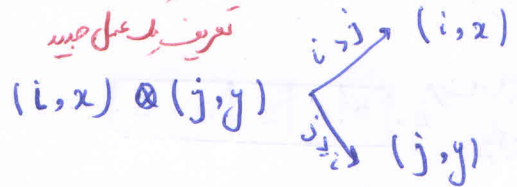 تعریف یک عمل جدید
i > j (i, x)
(i, x) ⊗ (j, y)
j ≥ i (j, y)